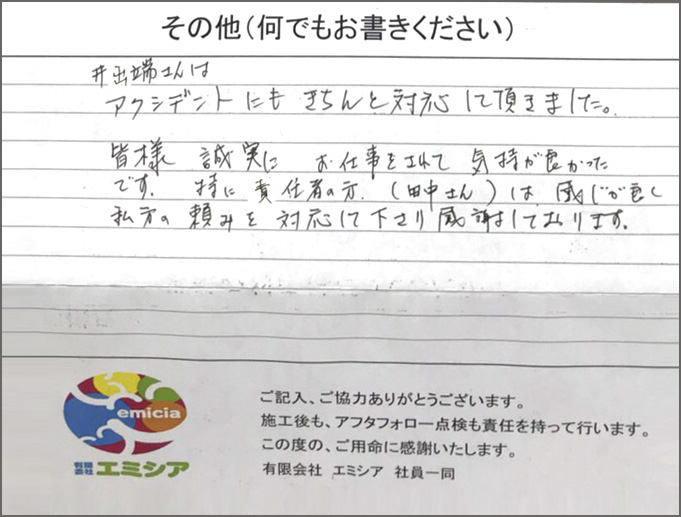 その他（何でもお書きください）
井出端さんは
アクシデントにも きちんと対応して頂きました。
皆様 誠実に お仕事をされて 気持が良かった
です。 特に 責任者の方、（田中さん）は 感じが良く
私方の 頼みを 対応して下さり 感謝しております。
emicia
有限会社 エミシア
ご記入、ご協力ありがとうございます。
施工後も、アフタフォロー点検も責任を持って行います。
この度の、ご用命に感謝いたします。
有限会社 エミシア 社員一同